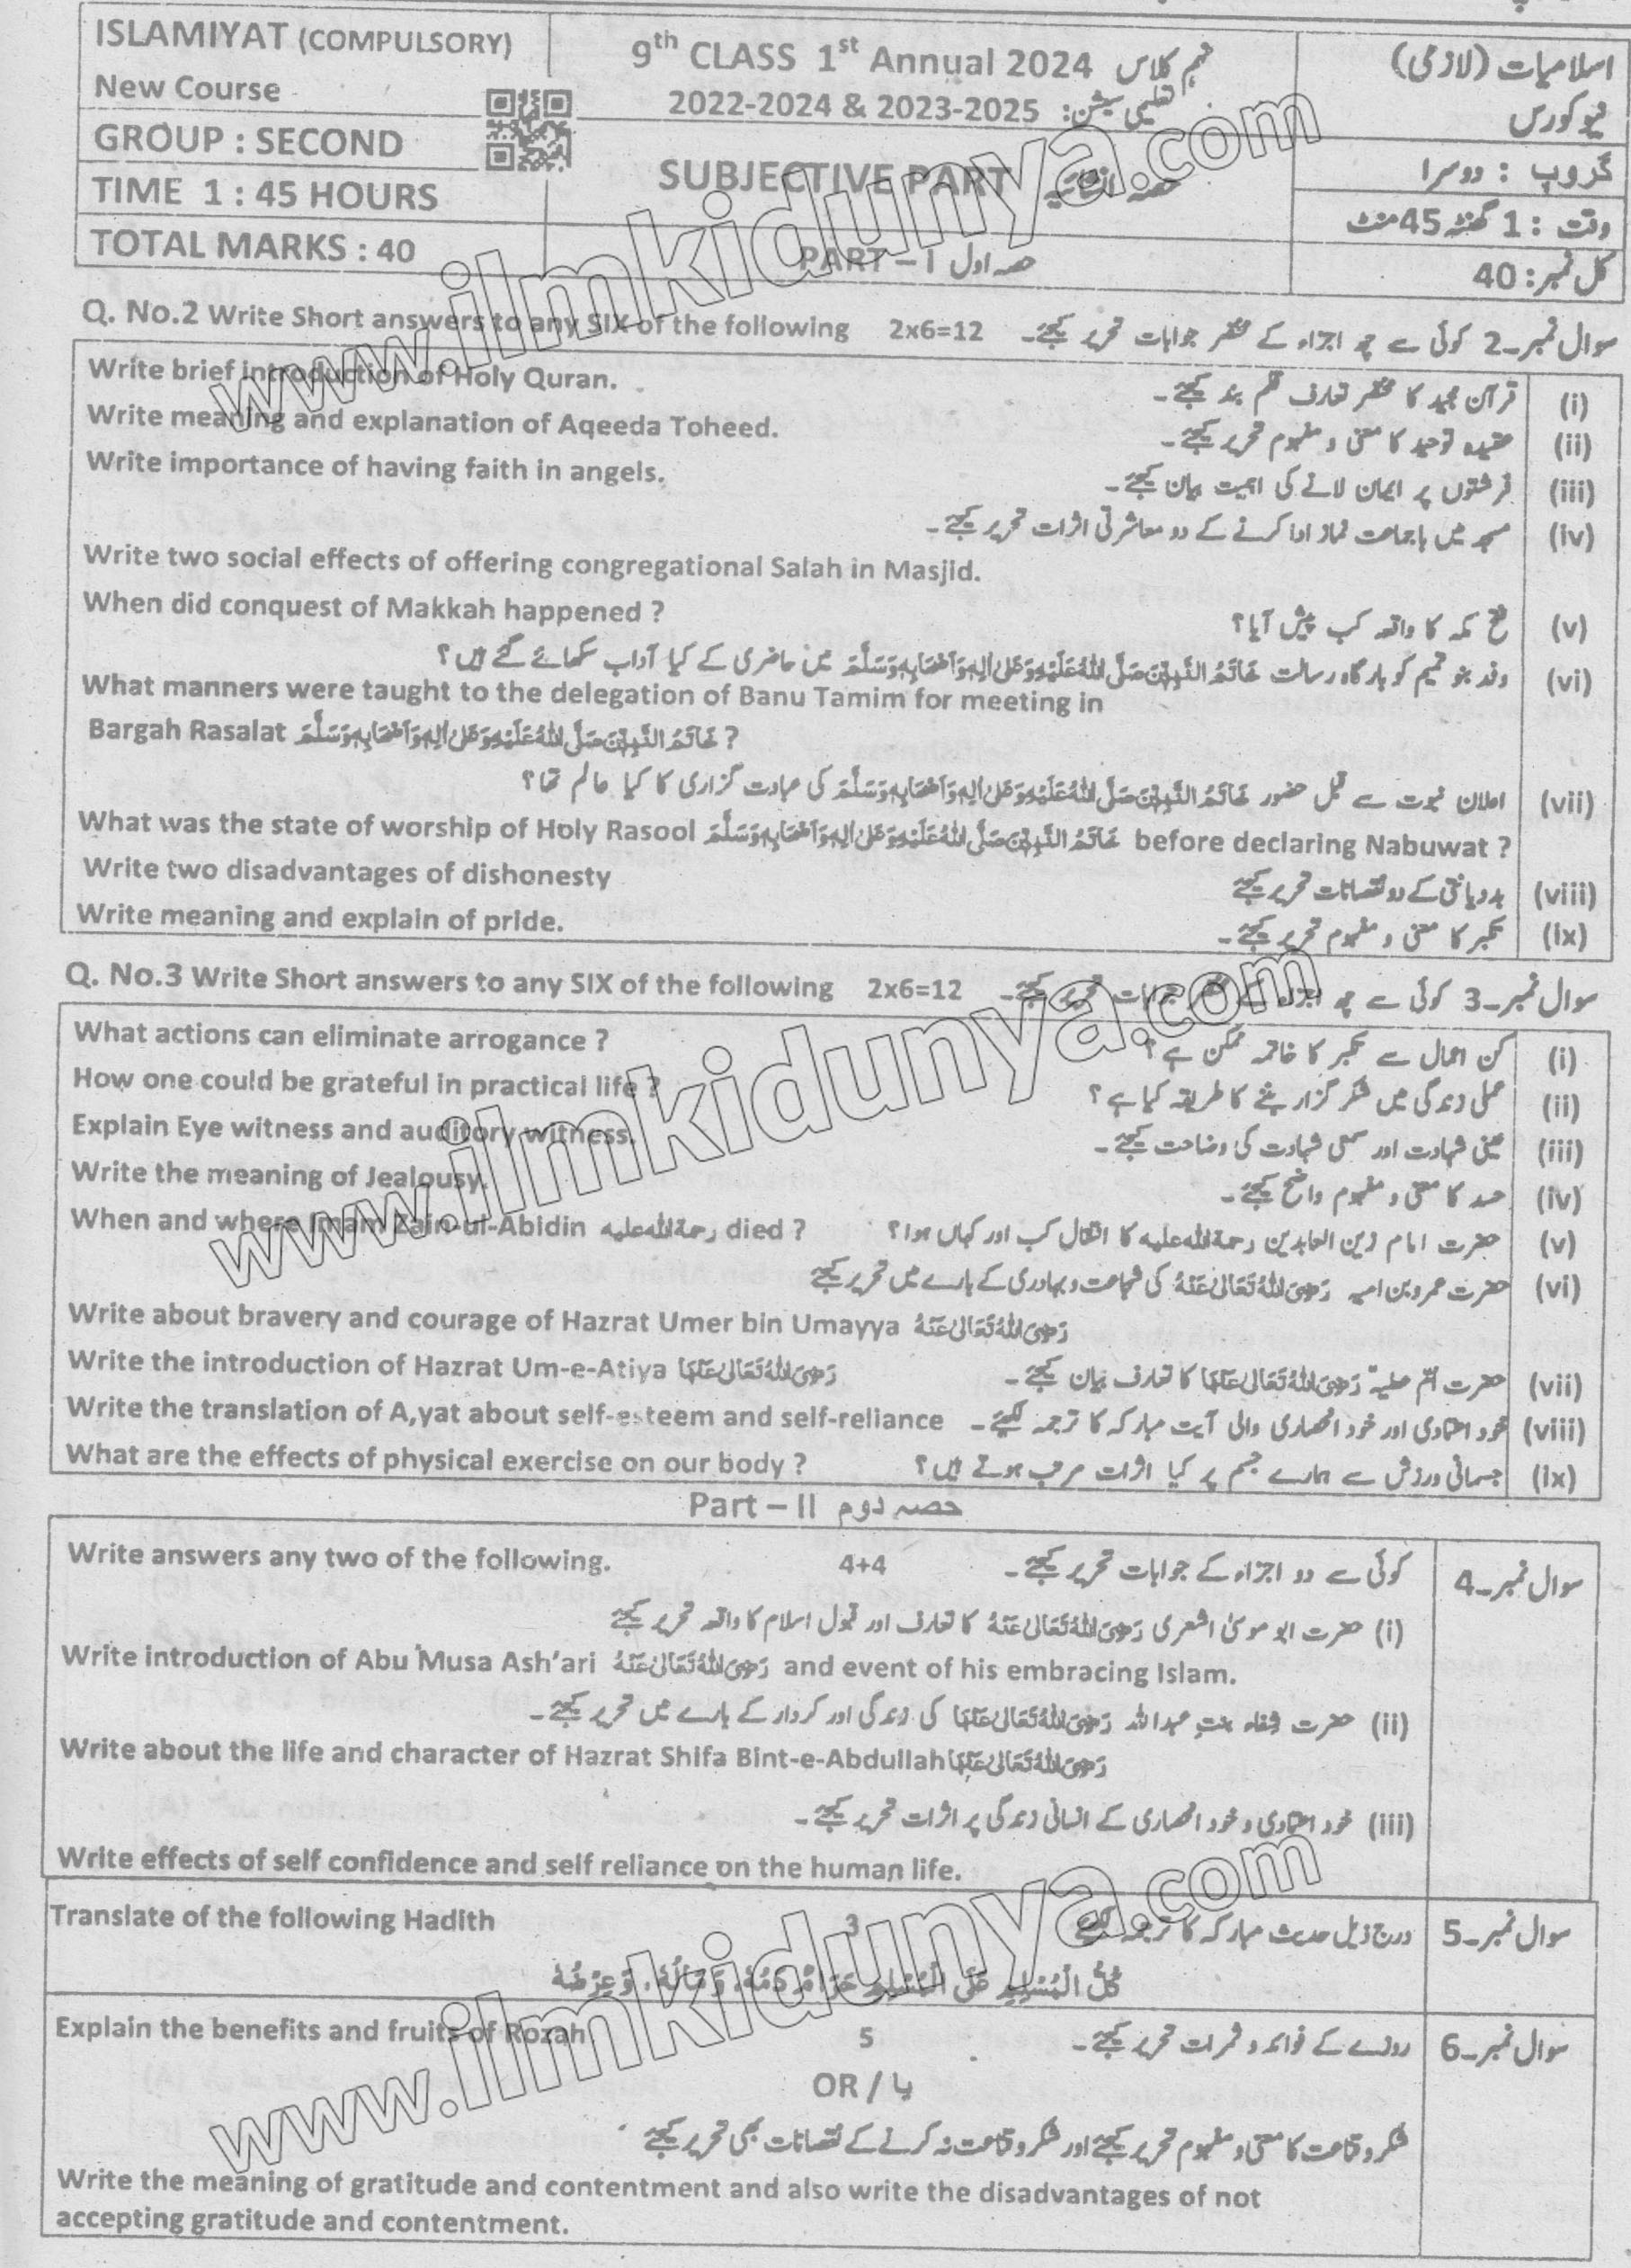 ISLAMIYAT (COMPULSORY)
New Course
GROUP : SECOND
TIME 1 : 45 HOURS
TOTAL MARKS : 40
9th CLASS 1st Annual 2024 نہم کلاس
2022-2024 & 2023-2025 :تعلیمی سیشن
SUBJECTIVE PART حصہ انشائیہ
PART – I حصہ اول
اسلامیات (لازمی)
نیو کورس
گروپ : دوسرا
وقت : 1 گھنٹہ 45 منٹ
کل نمبر : 40
Q. No.2 Write Short answers to any SIX of the following 2x6=12 سوال نمبر۔2 کوئی سے چھ اجزاء کے مختصر جوابات تحریر کیجئے۔
Write brief introduction of Holy Quran. قرآن مجید کا مختصر تعارف قلم بند کیجئے۔ (i)
Write meaning and explanation of Aqeeda Toheed. عقیدہ توحید کا معنی و مفہوم تحریر کیجئے۔ (ii)
Write importance of having faith in angels. فرشتوں پر ایمان لانے کی اہمیت بیان کیجئے۔ (iii)
مسجد میں باجماعت نماز ادا کرنے کے دو معاشرتی اثرات تحریر کیجئے۔ (iv)
Write two social effects of offering congregational Salah in Masjid.
When did conquest of Makkah happened ? فتح مکہ کا واقعہ کب پیش آیا؟ (v)
وفد بنو تمیم کو بارگاہ رسالت خَاتَمُ النَّبِیّٖنَ صَلَّی اللهُ عَلَیْهِ وَعَلٰی اٰلِهٖ وَاَصْحَابِهٖ وَسَلَّمَ میں حاضری کے کیا آداب سکھائے گئے ہیں؟ (vi)
What manners were taught to the delegation of Banu Tamim for meeting in
Bargah Rasalat خَاتَمُ النَّبِیّٖنَ صَلَّی اللهُ عَلَیْهِ وَعَلٰی اٰلِهٖ وَاَصْحَابِهٖ وَسَلَّمَ ?
اعلان نبوت سے قبل حضور خَاتَمُ النَّبِیّٖنَ صَلَّی اللهُ عَلَیْهِ وَعَلٰی اٰلِهٖ وَاَصْحَابِهٖ وَسَلَّمَ کی عبادت گزاری کا کیا عالم تھا؟ (vii)
What was the state of worship of Holy Rasool خَاتَمُ النَّبِیّٖنَ صَلَّی اللهُ عَلَیْهِ وَعَلٰی اٰلِهٖ وَاَصْحَابِهٖ وَسَلَّمَ before declaring Nabuwat ?
Write two disadvantages of dishonesty بددیانتی کے دو نقصانات تحریر کیجئے (viii)
Write meaning and explain of pride. تکبر کا معنی و مفہوم تحریر کیجئے۔ (ix)
Q. No.3 Write Short answers to any SIX of the following 2x6=12 سوال نمبر۔3 کوئی سے چھ اجزاء کے مختصر جوابات تحریر کیجئے۔
What actions can eliminate arrogance ? کن اعمال سے تکبر کا خاتمہ ممکن ہے؟ (i)
How one could be grateful in practical life ? عملی زندگی میں شکر گزار بننے کا طریقہ کیا ہے؟ (ii)
Explain Eye witness and auditory witness. عینی شہادت اور سمعی شہادت کی وضاحت کیجئے۔ (iii)
Write the meaning of Jealousy. حسد کا معنی و مفہوم واضح کیجئے۔ (iv)
When and where Imam Zain-ul-Abidin رحمة الله علیه died ? حضرت امام زین العابدین رحمة الله علیه کا انتقال کب اور کہاں ہوا؟ (v)
حضرت عمرو بن امیہ رَضِیَ اللهُ تَعَالٰی عَنْهُ کی شجاعت و بہادری کے بارے میں تحریر کیجئے (vi)
Write about bravery and courage of Hazrat Umer bin Umayya رَضِیَ اللهُ تَعَالٰی عَنْهُ
Write the introduction of Hazrat Um-e-Atiya رَضِیَ اللهُ تَعَالٰی عَنْهَا حضرت اُمّ عطیہؓ رَضِیَ اللهُ تَعَالٰی عَنْهَا کا تعارف بیان کیجئے۔ (vii)
Write the translation of A,yat about self-esteem and self-reliance خود اعتمادی اور خود انحصاری والی آیت مبارکہ کا ترجمہ لکھیئے۔ (viii)
What are the effects of physical exercise on our body ? جسمانی ورزش سے ہمارے جسم پر کیا اثرات مرتب ہوتے ہیں؟ (ix)
Part – II حصہ دوم
Write answers any two of the following. 4+4 کوئی سے دو اجزاء کے جوابات تحریر کیجئے۔ سوال نمبر۔4
(i) حضرت ابو موسیٰ اشعری رَضِیَ اللهُ تَعَالٰی عَنْهُ کا تعارف اور قبول اسلام کا واقعہ تحریر کیجئے
Write introduction of Abu Musa Ash'ari رَضِیَ اللهُ تَعَالٰی عَنْهُ and event of his embracing Islam.
(ii) حضرت شِفاء بنتِ عبداللہ رَضِیَ اللهُ تَعَالٰی عَنْهَا کی زندگی اور کردار کے بارے میں تحریر کیجئے۔
Write about the life and character of Hazrat Shifa Bint-e-Abdullah رَضِیَ اللهُ تَعَالٰی عَنْهَا
(iii) خود اعتمادی و خود انحصاری کے انسانی زندگی پر اثرات تحریر کیجئے۔
Write effects of self confidence and self reliance on the human life.
Translate of the following Hadith 3 درج ذیل حدیث مبارکہ کا ترجمہ کیجئے سوال نمبر۔5
كُلُّ الْمُسْلِمِ عَلَى الْمُسْلِمِ حَرَامٌ دَمُهٗ، وَمَالُهٗ، وَعِرْضُهٗ
Explain the benefits and fruits of Rozah 5 روزے کے فوائد و ثمرات تحریر کیجئے۔ سوال نمبر۔6
OR / یا
شکر و قناعت کا معنی و مفہوم تحریر کیجئے اور شکر و قناعت نہ کرنے کے نقصانات بھی تحریر کیجئے
Write the meaning of gratitude and contentment and also write the disadvantages of not
accepting gratitude and contentment.
www.ilmkidunya.com
www.ilmkidunya.com
www.ilmkidunya.com